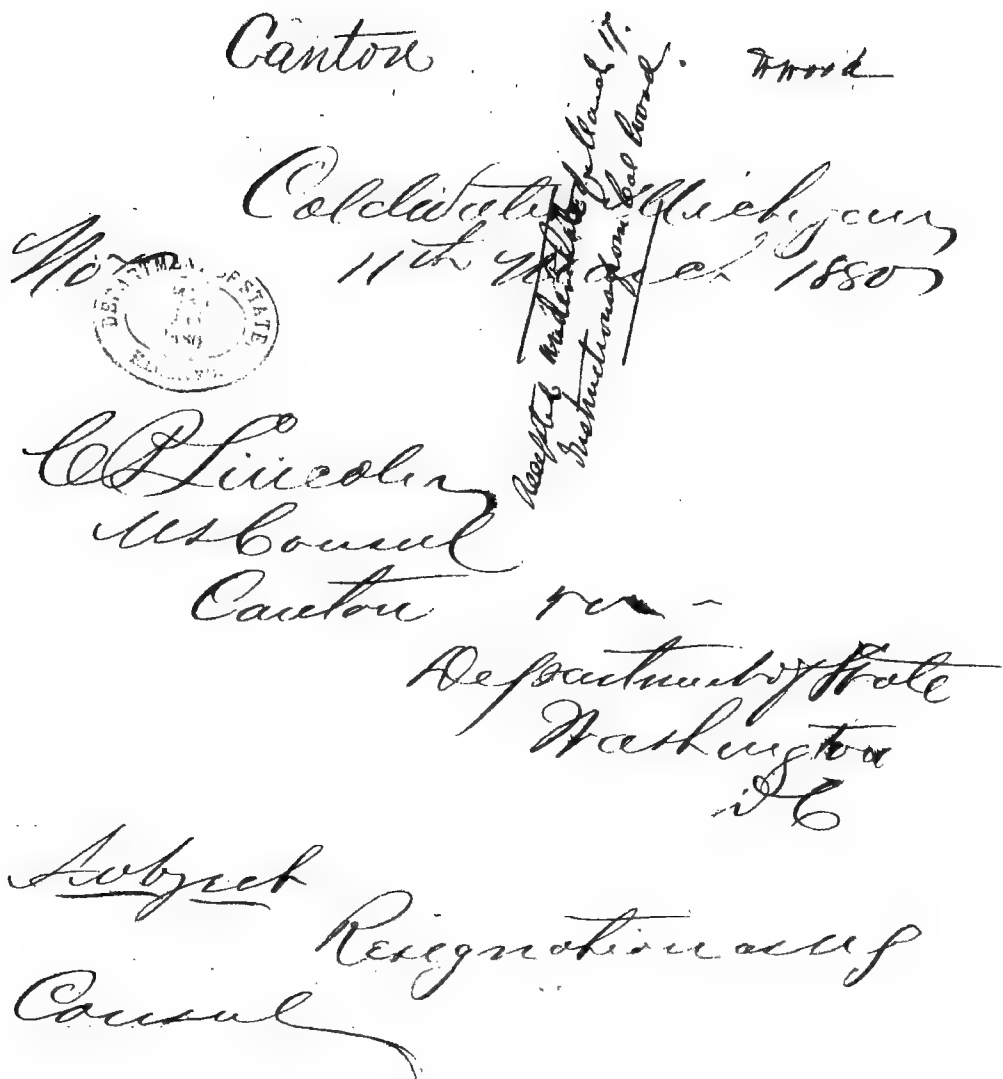 Canton
Coldwater Michigan
No
11th March 1880
DEPARTMENT OF STATE
Accepted under date of March 17.
Instructions from Col Wood.
C P Lincoln
US Consul
Canton
Department of State
Washington
D C
Subject
Resignation as US
Consul